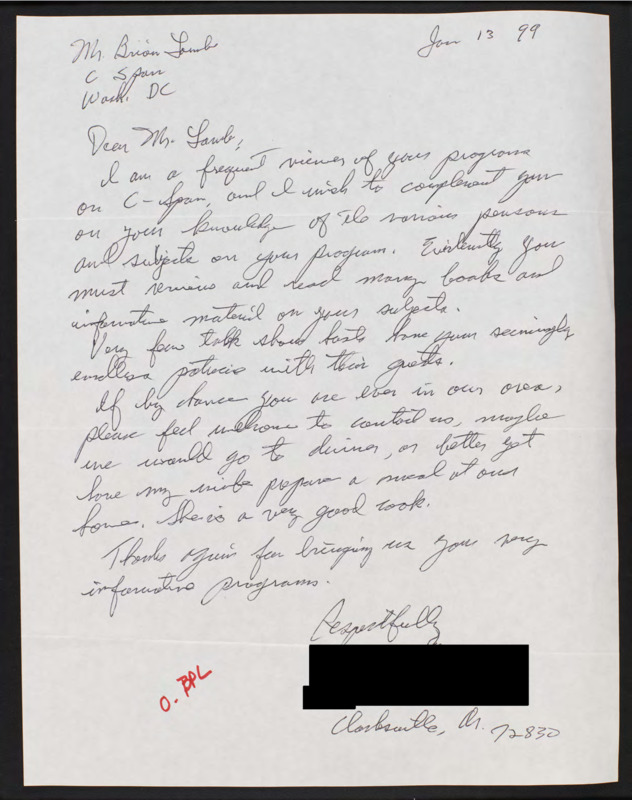 Jan 13 99
Mr. Brian Lamb
C Span
Wash. DC
Dear Mr. Lamb,
I am a frequent viewer of your programs
on C-Span, and I wish to complement you
on your knowledge of the various persons
and subjects on your program. Evidently you
must review and read many books and
informative material on your subjects.
Very few talk show hosts have your seemingly
endless patience with their guests.
If by chance you are ever in our area,
please feel welcome to contact us, maybe
we would go to dinner, or better yet
have my wife prepare a meal at our
home. She is a very good cook.
Thanks again for bringing us your very
informative programs.
Respectfully
O. BPL
Clarksville, Ar. 72830